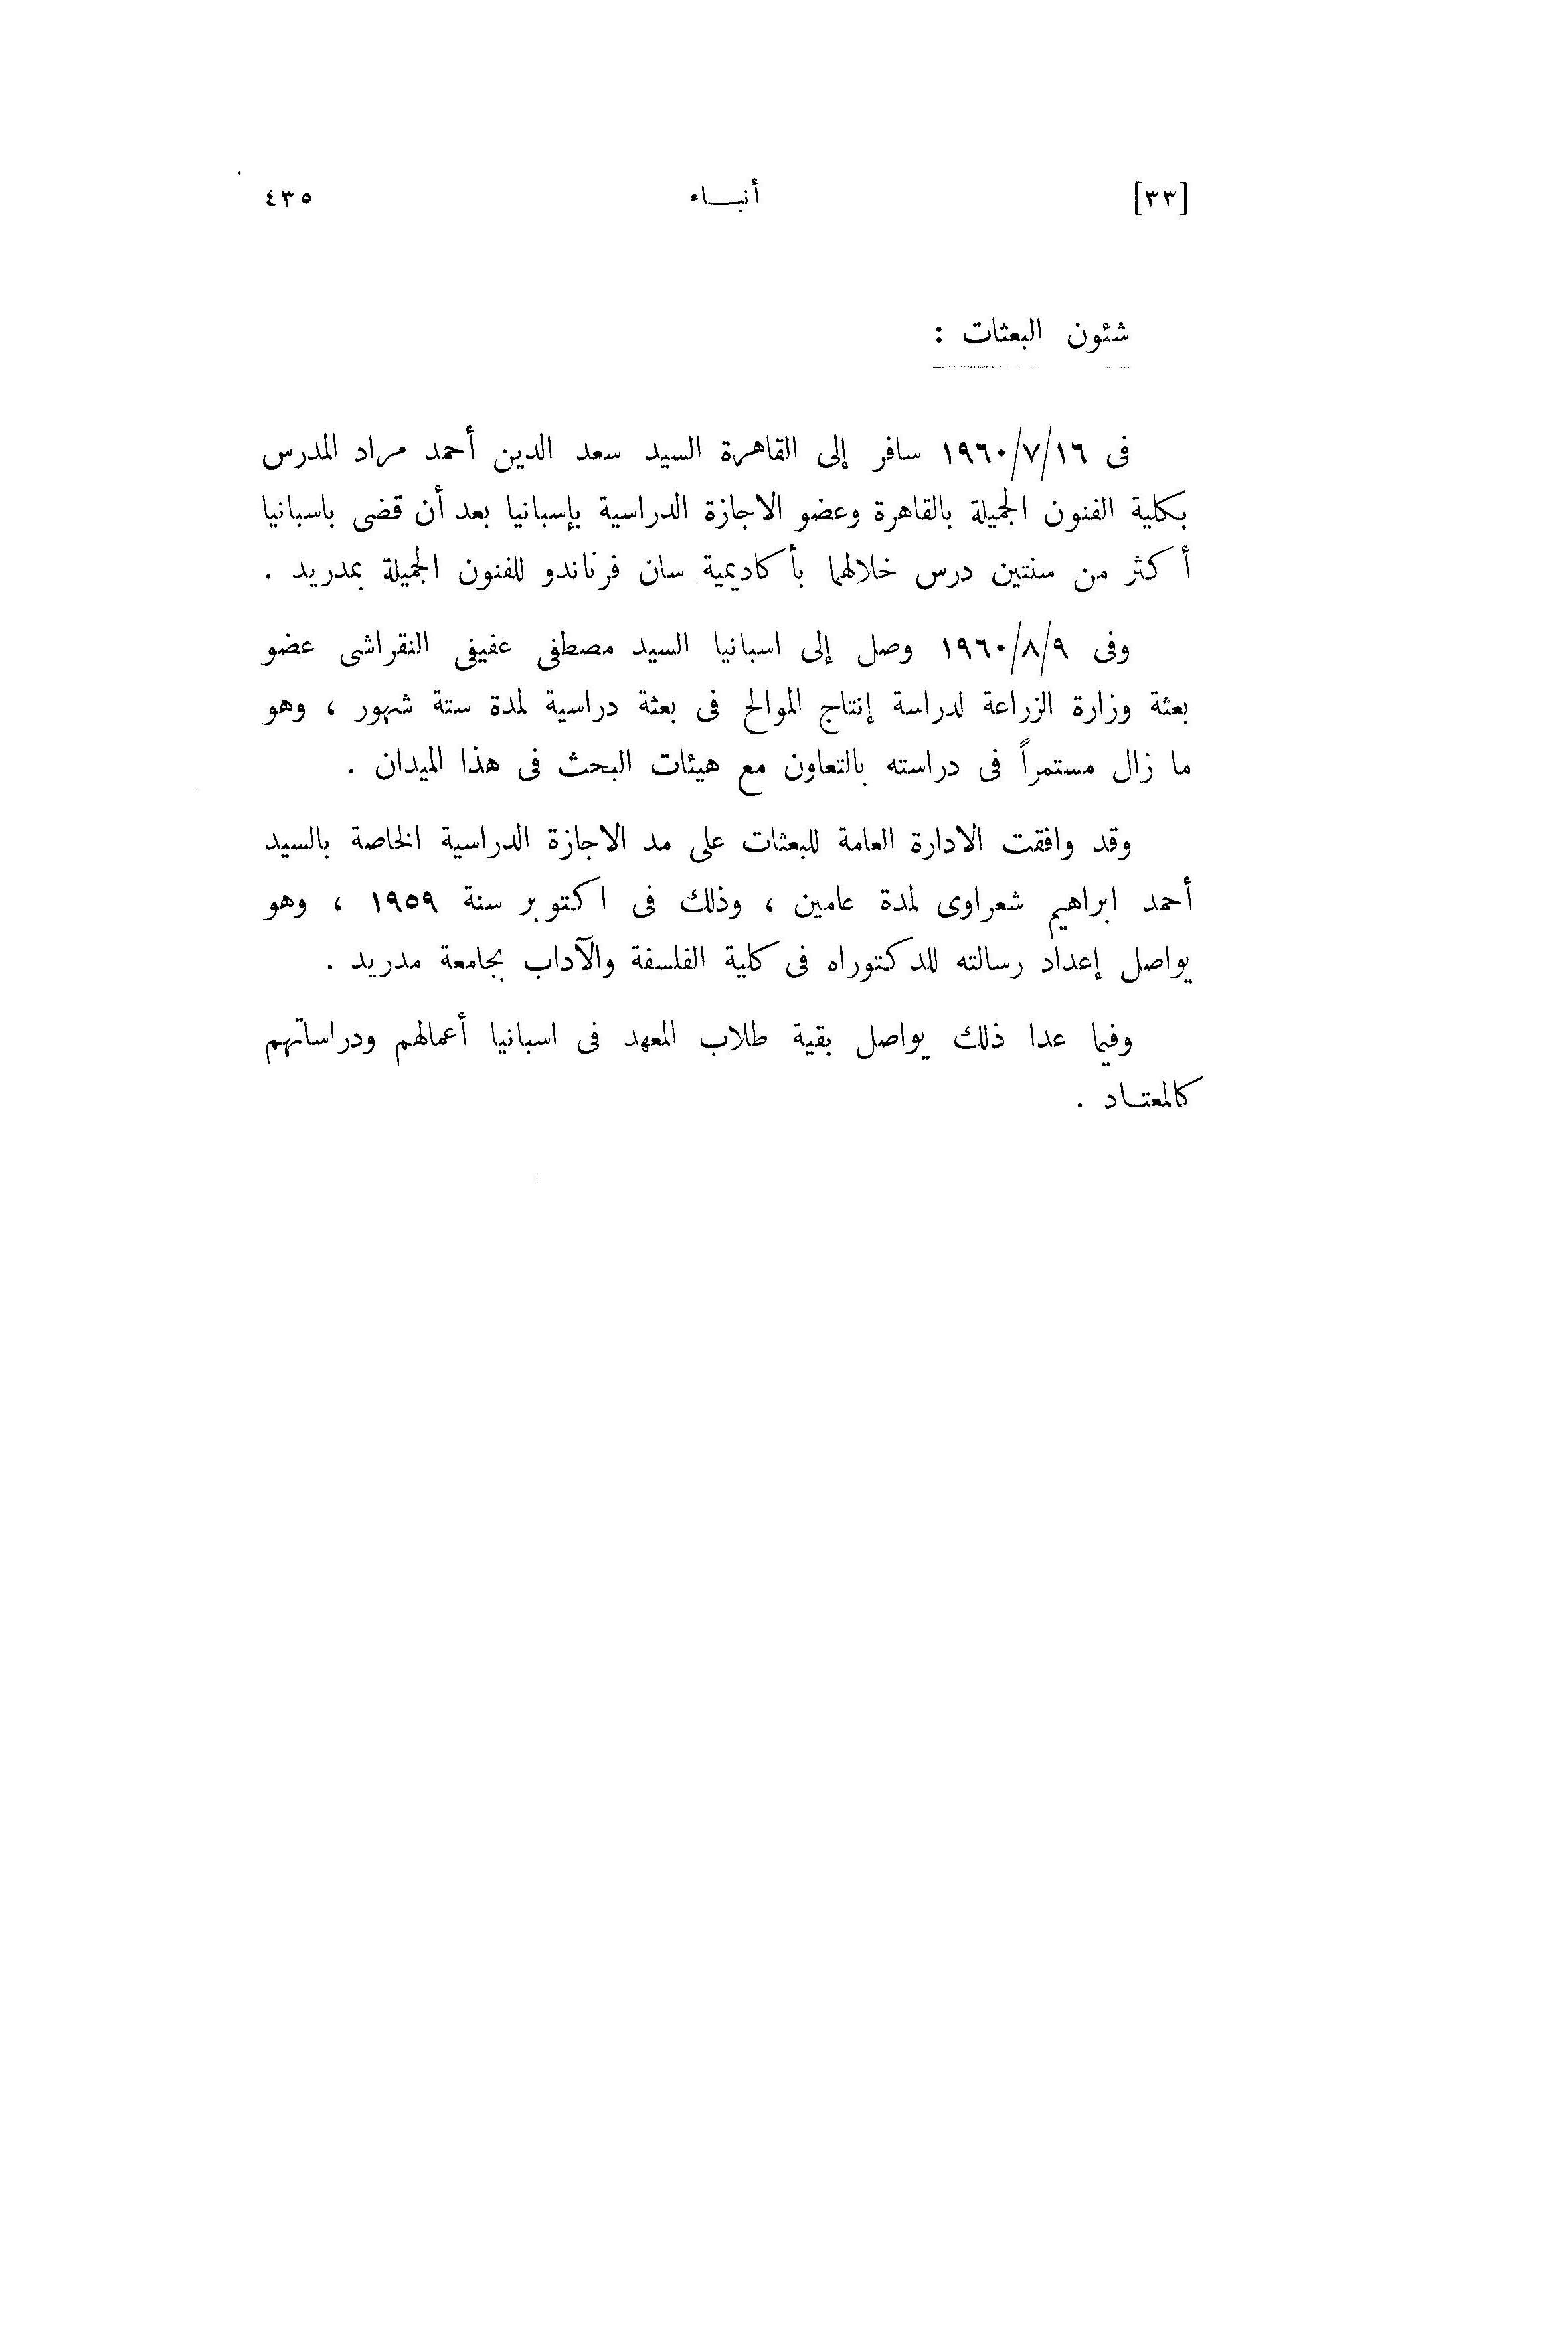 [٣٣] أنباء ٤٣٥
شئون البعثات :
فى ١٩٦٠/٧/١٦ سافر إلى القاهرة السيد سعد الدين أحمد مراد المدرس
بكلية الفنون الجميلة بالقاهرة وعضو الاجازة الدراسية بإسبانيا بعد أن قضى باسبانيا
أكثر من سنتين درس خلالهما بأكاديمية سان فرناندو للفنون الجميلة بمدريد .
وفى ١٩٦٠/٨/٩ وصل إلى اسبانيا السيد مصطفى عفيفى النقراشى عضو
بعثة وزارة الزراعة لدراسة إنتاج الموالح فى بعثة دراسية لمدة ستة شهور ، وهو
ما زال مستمراً فى دراسته بالتعاون مع هيئات البحث فى هذا الميدان .
وقد وافقت الادارة العامة للبعثات على مد الاجازة الدراسية الخاصة بالسيد
أحمد ابراهيم شعراوى لمدة عامين ، وذلك فى اكتوبر سنة ١٩٥٩ ، وهو
يواصل إعداد رسالته للدكتوراه فى كلية الفلسفة والآداب بجامعة مدريد .
وفيما عدا ذلك يواصل بقية طلاب المعهد فى اسبانيا أعمالهم ودراساتهم
كالمعتاد .